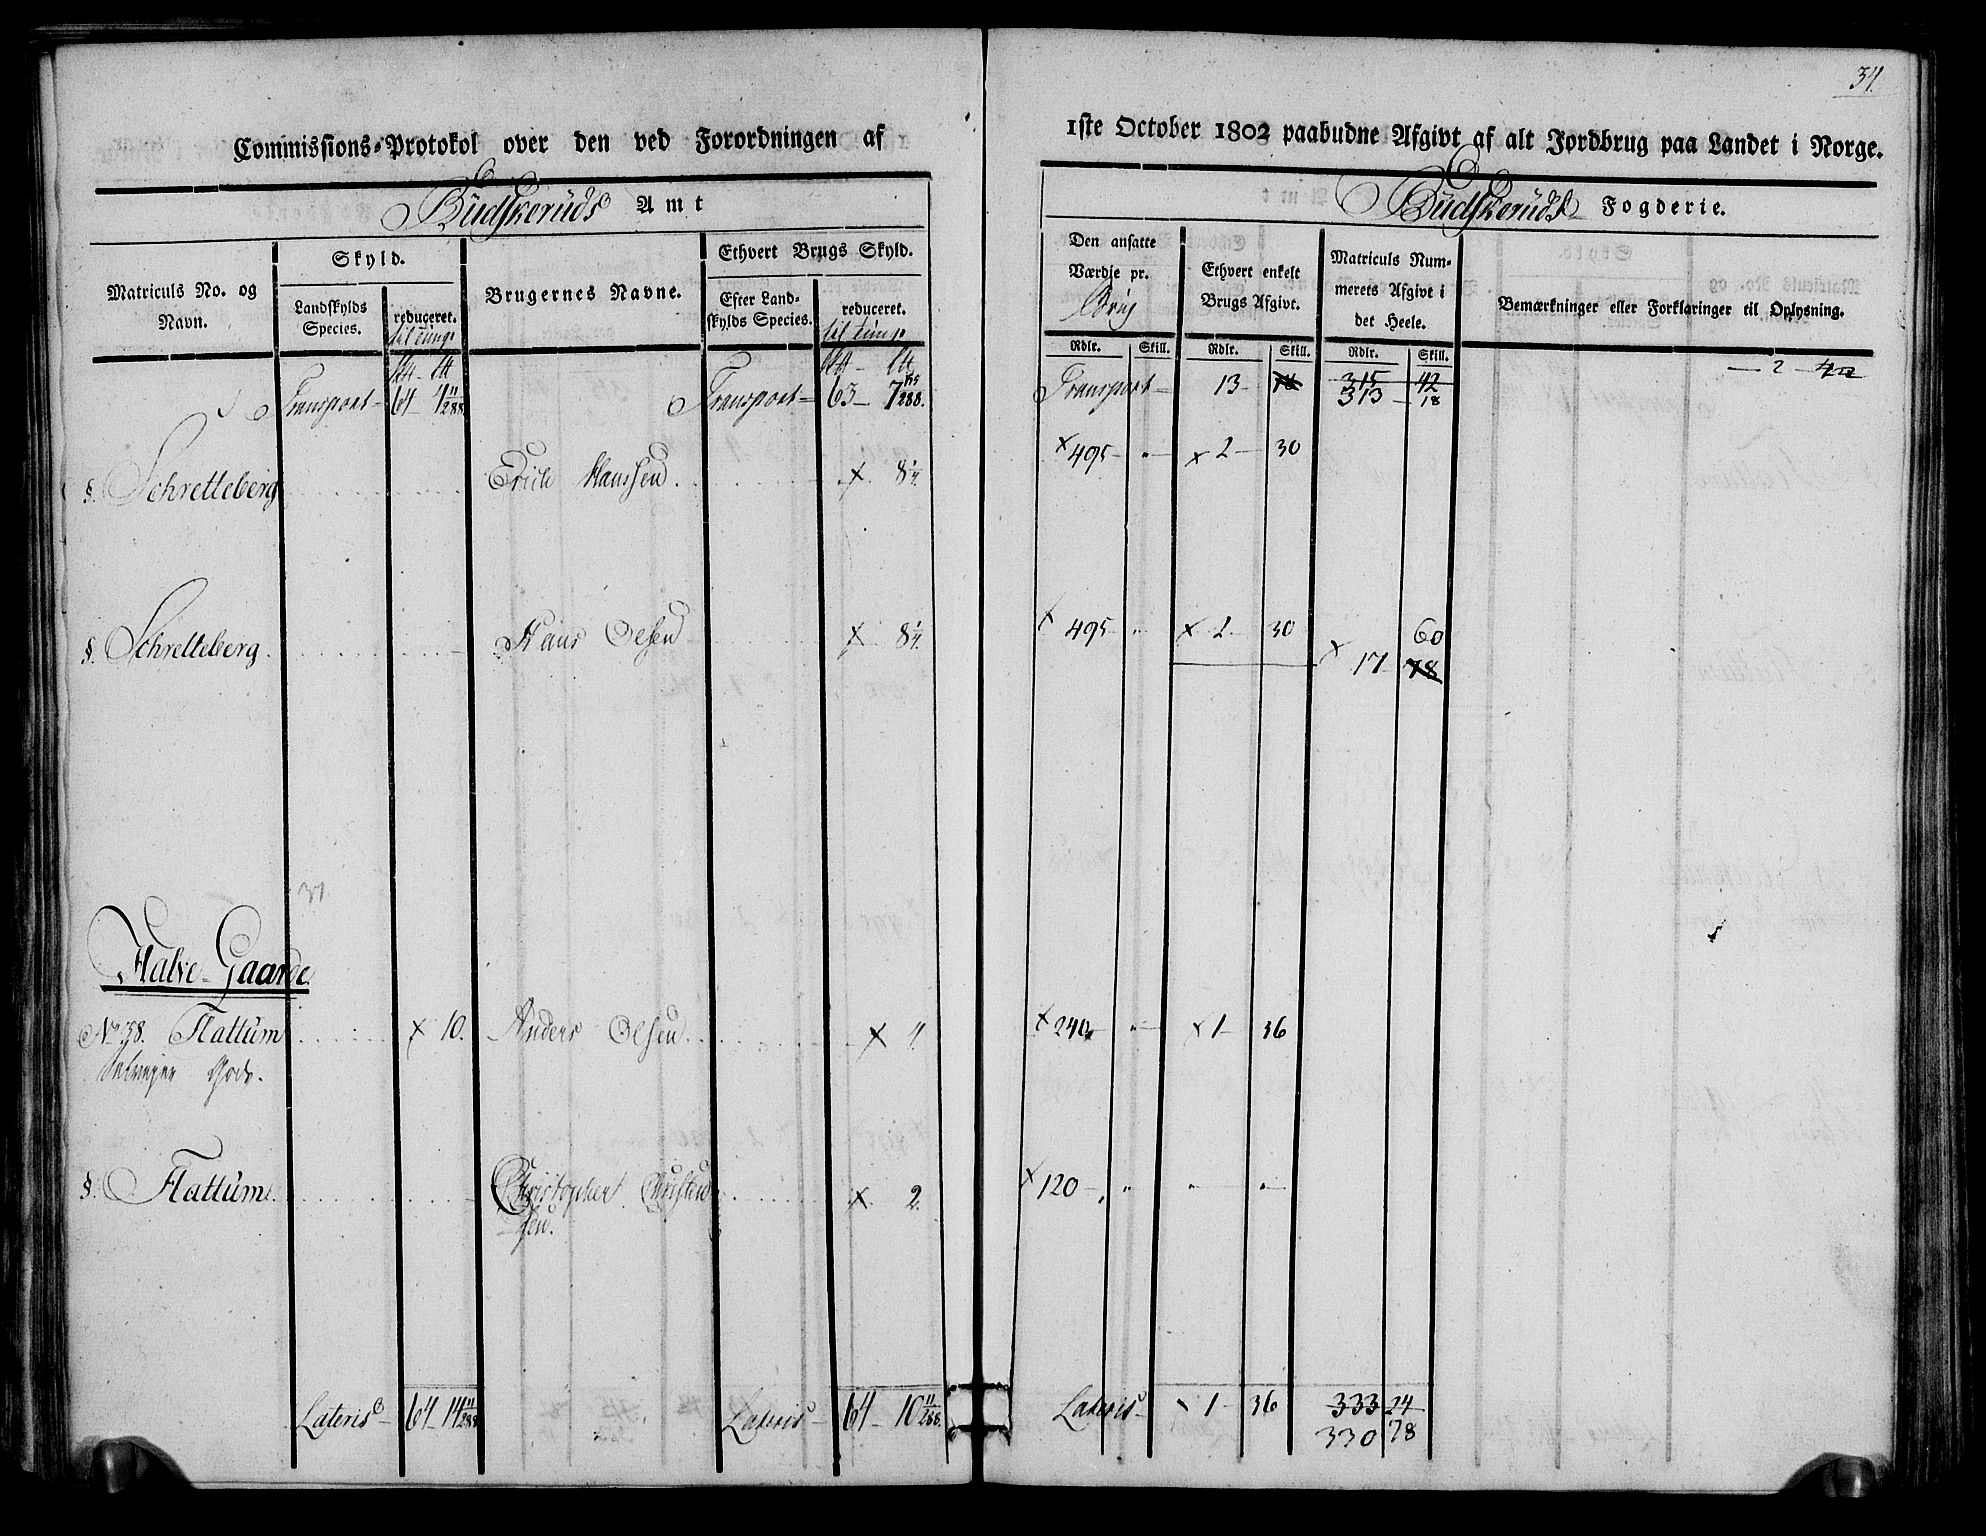 34.
Commissions-Protokol over den ved Forordningen af
1ste October 1802 paabudne Afgivt af alt Jordbrug paa Landet i Norge.
Budskeruds Amt
Budskeruds Fogderie.
Matriculs No. og Navn.
Skyld.
Landskylds Species.
reduceret.
til tunge
Brugernes Navne.
Ethvert Brugs Skyld.
Efter Landskylds Species.
reduceret.
til tunge
Den ansatte Værdje pr. Brug
Ethvert enkelt Brugs Afgivt.
Matriculs Nummerets Afgivt i det Heele.
Bemærkninger eller Forklaringer til Oplysning.
Rdlr. Skill. Rdlr. Skill. Rdlr. Skill.
Transport 64 4 11/288 Transport 63 7 155/288. Transport 13 315 42
313 18
§. Schretteberg Erich Hanssen x 8 1/4 x 495 " x 2 30
§. Schretteberg. Hans Olsen x 8 1/4. x 495 " x 2 30 x 17 60
78
37
Halve-Gaarde.
No 38. Flattum x 10. Anders Olsen x 4. x 240 " x 1 36
Gods.
§. Flattum. Christopher Christensen. x 2. x 120 " " "
Lateris 64 14 11/288 Lateris 64 10 11/288. Lateris x 1 36 333 24
330 78